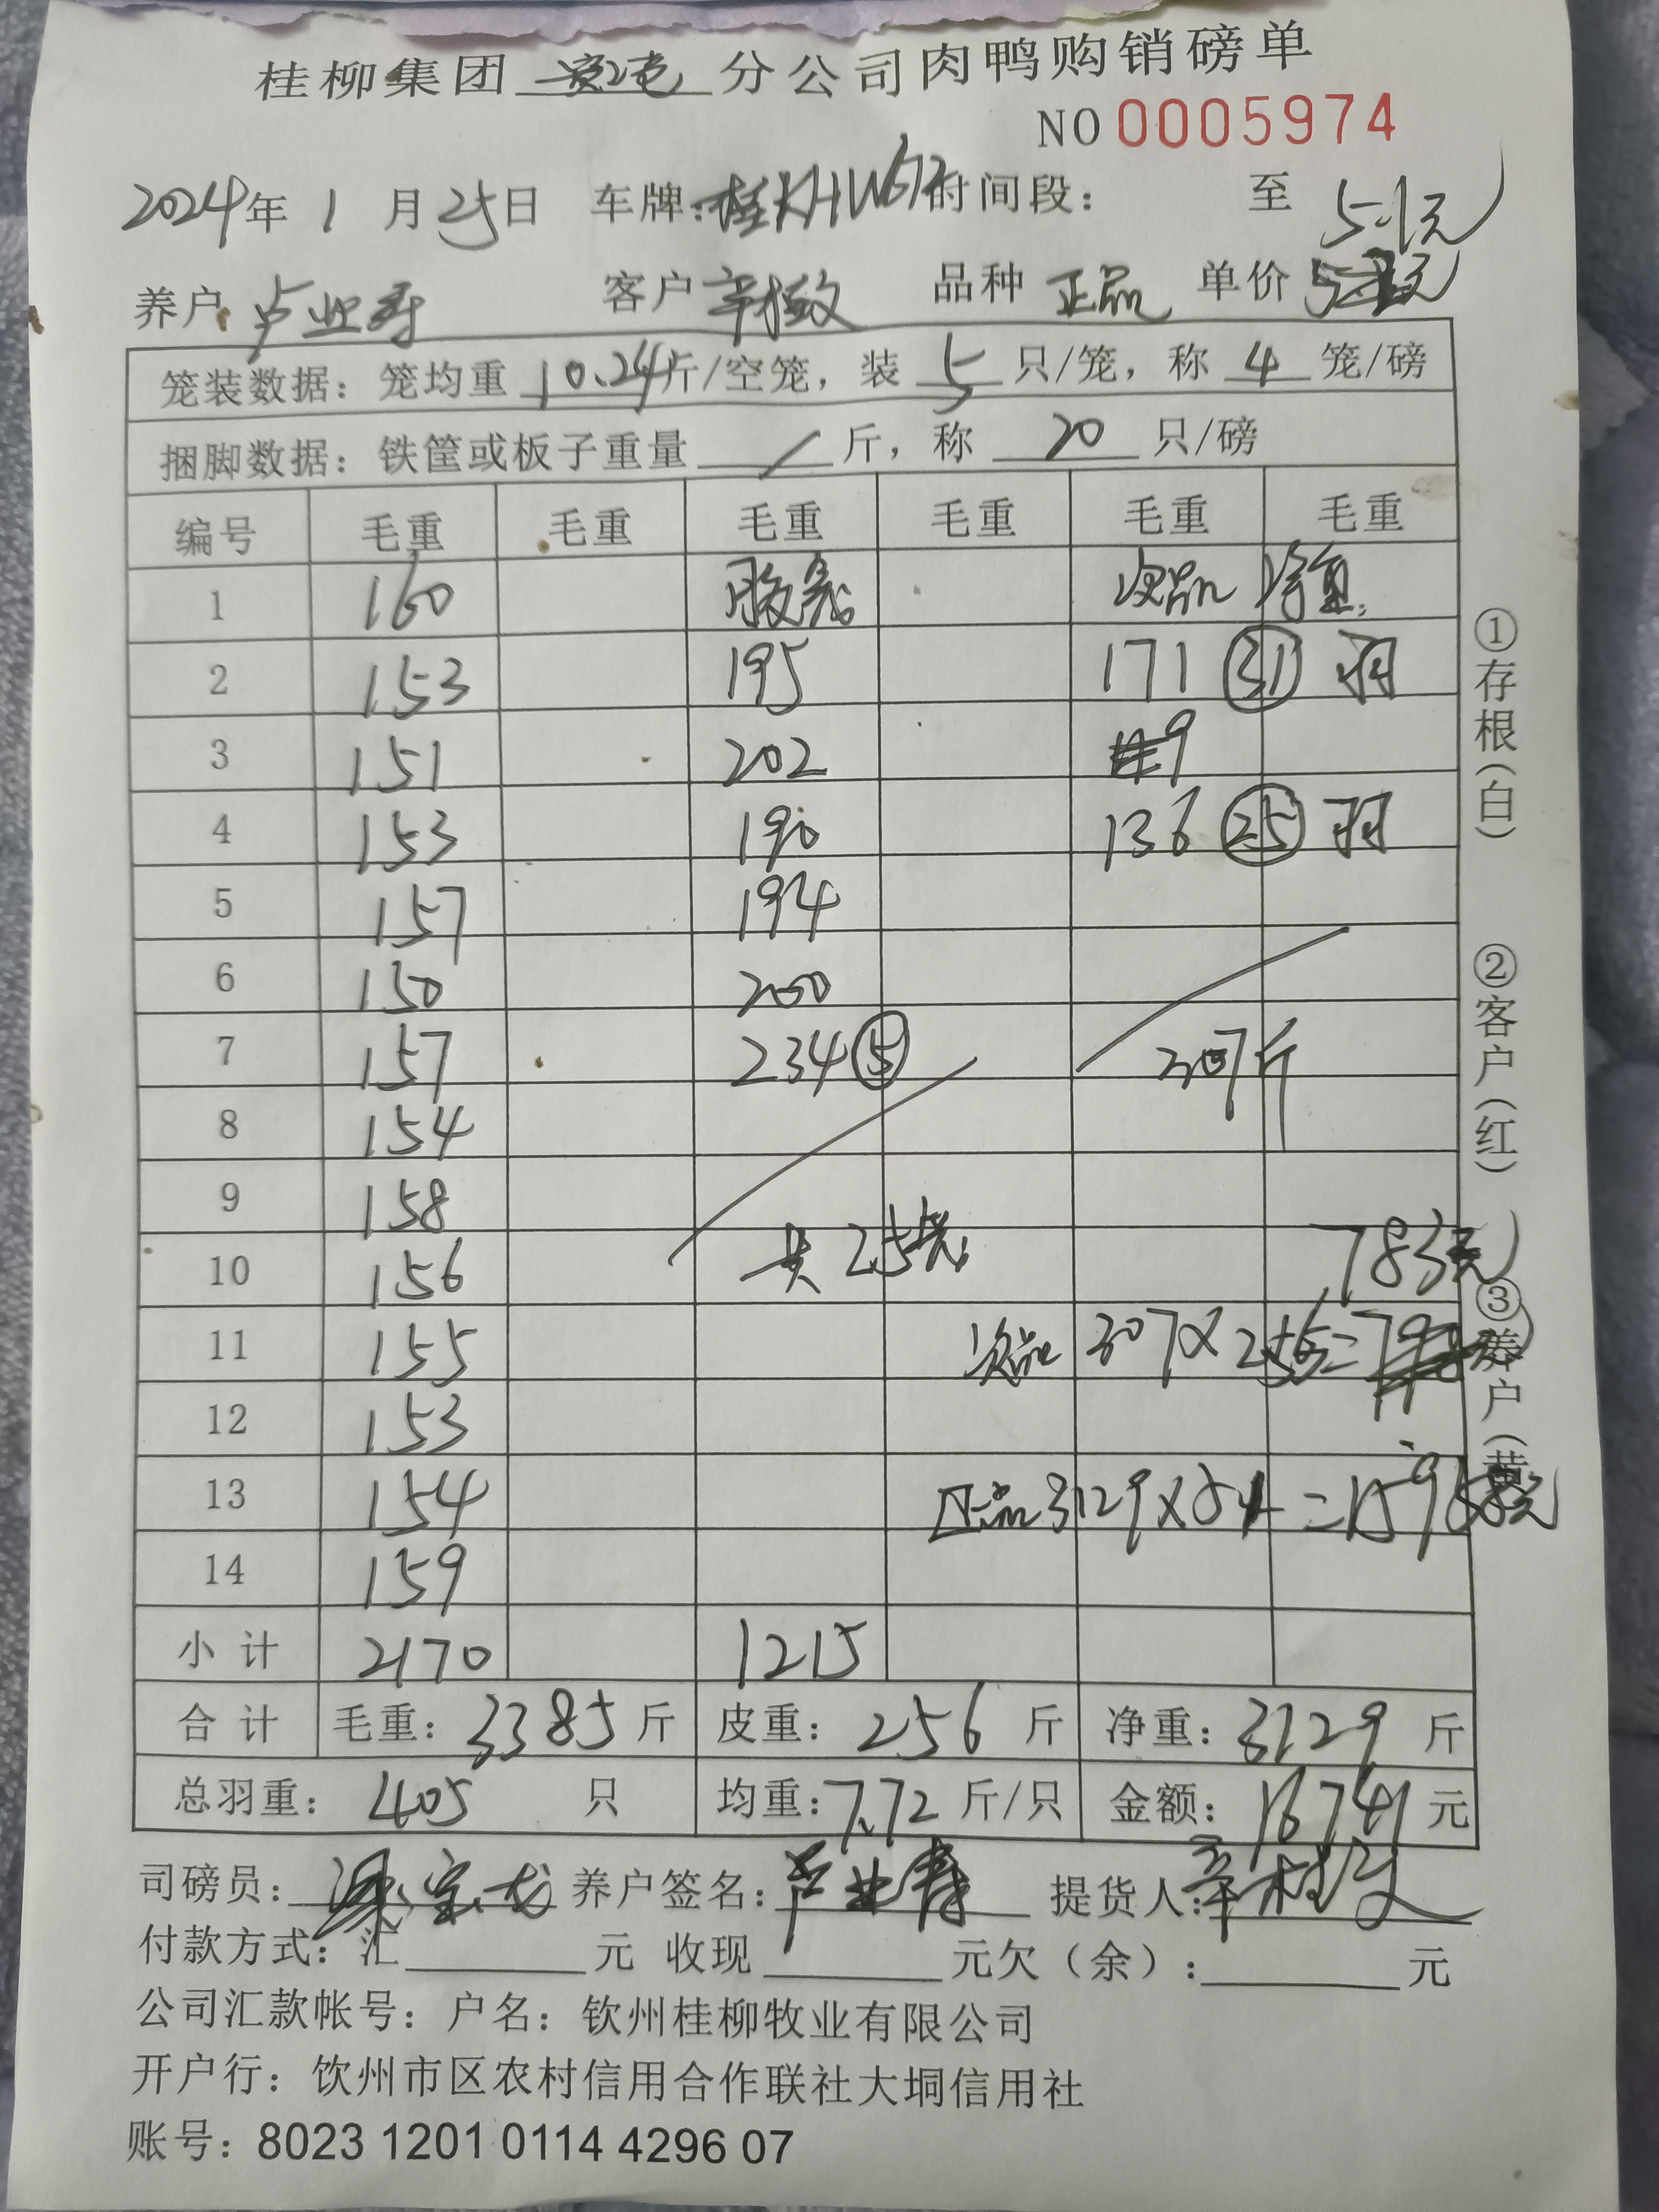 桂柳集团 分公司肉鸭购销磅单
NO 0005974
2024年 1 月 25日 车牌: 时间段: 至
5.1元
养户 卢业寿 客户 辛 品种 正品 单价
笼装数据: 笼均重 10.24斤/空笼, 装 5 只/笼, 称 4 笼/磅
捆脚数据: 铁筐或板子重量 / 斤, 称 20 只/磅
编号 毛重 毛重 毛重 毛重 毛重 毛重
1 160 胶 次品 净重
2 153 195 171 31 羽
3 151 202 9
4 153 190 136 25 羽
5 157 194
6 150 200
7 157 234 5 307斤
8 154
9 158
10 156 共 25 783元
11 155 次品 307×2.55=
12 153
13 154 正品 3129×5.1=15958元
14 159
小计 2170 1215
合计 毛重: 3385 斤 皮重: 256 斤 净重: 3129 斤
总羽重: 405 只 均重: 7.72 斤/只 金额: 16741 元
司磅员: 养户签名: 卢业寿 提货人: 辛
付款方式: 汇 元 收现 元欠（余）: 元
公司汇款帐号: 户名: 钦州桂柳牧业有限公司
开户行: 钦州市区农村信用合作联社大垌信用社
账号: 8023 1201 0114 4296 07
①存根(白) ②客户(红) ③养户(黄